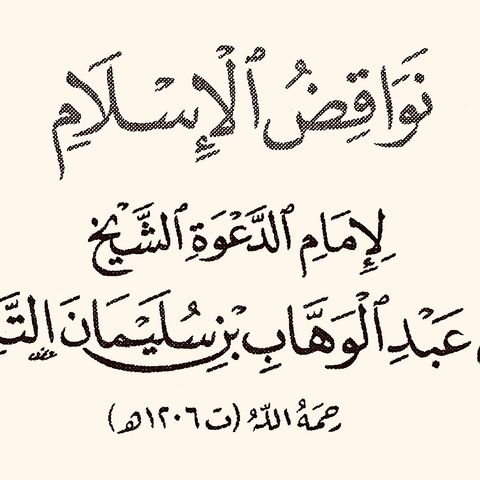 نَوَاقِضُ ٱلْإِسْلَامِ
لِإِمَامِ ٱلدَّعْوَةِ ٱلشَّيْخِ
عَبْدِ ٱلْوَهَّابِ بْنِ سُلَيْمَانَ
رَحِمَهُ اللَّهُ (ت ١٢٠٦هـ)